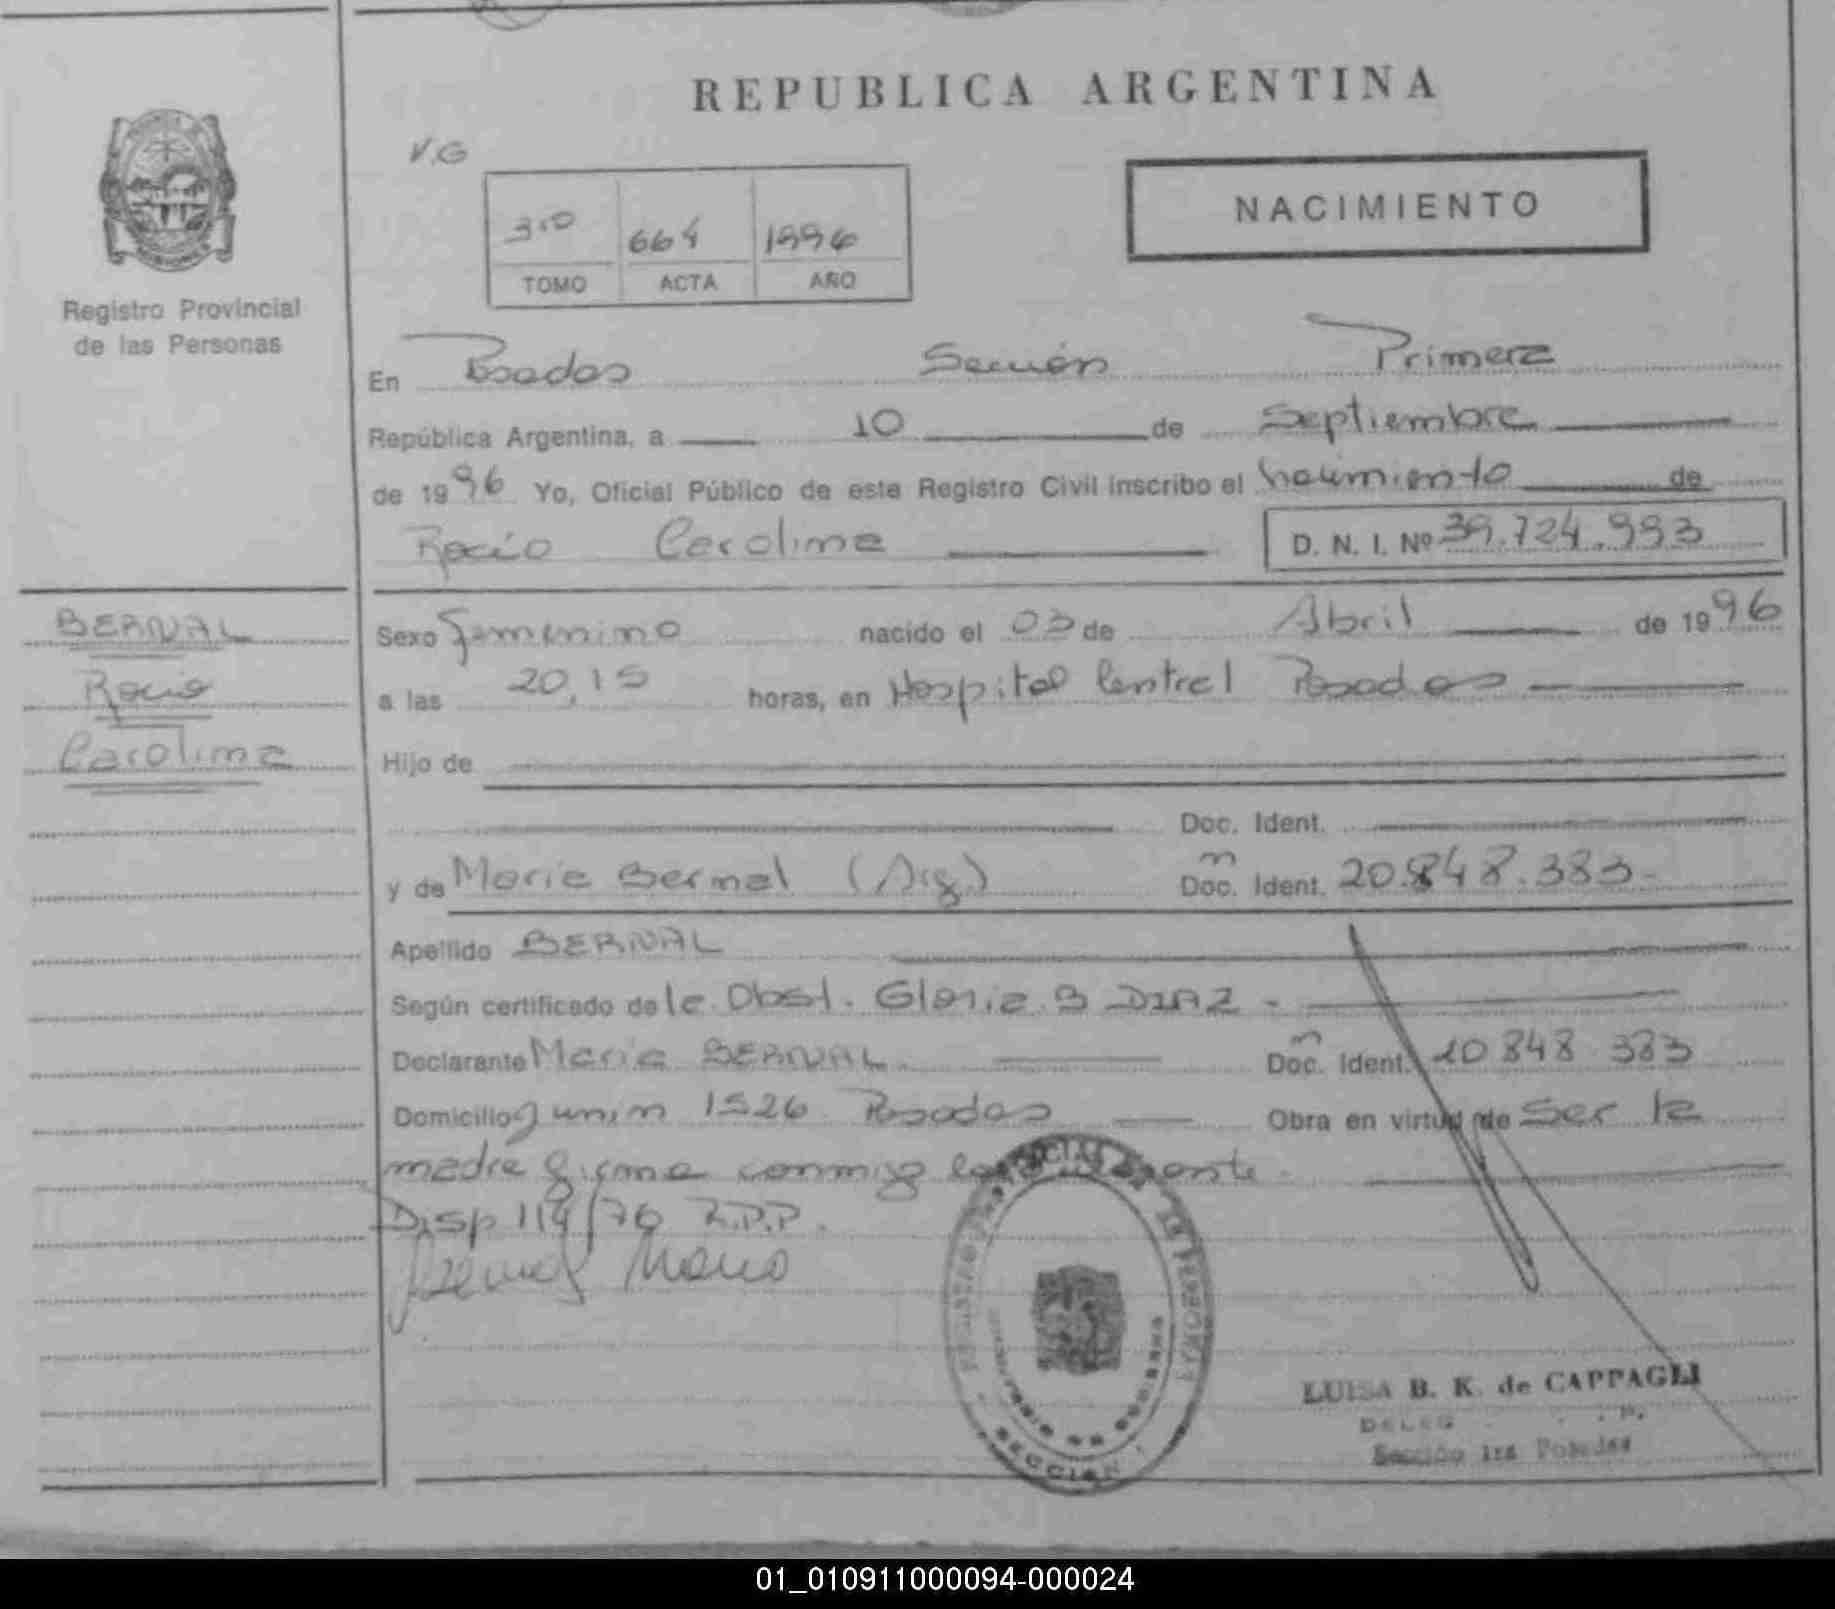 REPUBLICA ARGENTINA
V.G
NACIMIENTO
3ro 664 1996
TOMO ACTA AÑO
Registro Provincial
de las Personas
En Posadas Sección Primera
República Argentina, a 10 de Septiembre
de 1996 Yo, Oficial Público de este Registro Civil inscribo el nacimiento de
Rocío Carolina D. N. I. Nº 39.724.993
BERNAL
Rocio
Carolina
Sexo femenino nacido el 03 de Abril de 1996
a las 20,15 horas, en Hospital Central Posadas
Hijo de
Doc. Ident.
y de Maria Bernal (Arg.) Doc. Ident. 20.848.383-
Apellido BERNAL
Según certificado de la Obst. Gloria B DIAZ -
Declarante Maria BERNAL Doc. Ident. 20 848 383
Domicilio Junin 1526 Posadas Obra en virtud de Ser la
madre firma conmigo
Disp 114/76 R.P.P.
Bernal Maria
SECCION
LUISA B. K. de CAPPAGLI
Sección 1ra Posadas
01_010911000094-000024